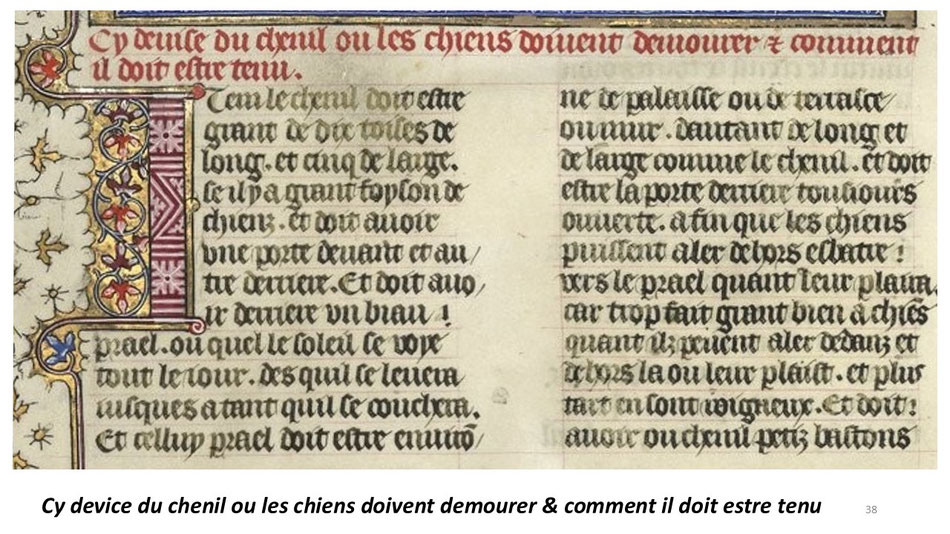 Cy deuise du chenil ou les chiens doiuent demourer & comment
il doit estre tenu.
Item le chenil doit estre
grant de dix toises de
long. et cinq de large.
se il y a grant foyson de
chienz. et doit auoir
vne porte deuant et au/
tre derriere. Et doit auo/
ir derriere vn biau !
prael. ou quel le soleil se voye
tout le iour. des quil se leuera
iusques a tant quil se couchera.
Et celluy prael doit estre enuirõ/
ne de paleisse ou de terrasce
ou mur. dautant de long et
de large comme le chenil. et doit
estre la porte derriere tousiours
ouuerte. a fin que les chiens
puissent aler dehors esbatre !
vers le prael quant leur plaira.
car trop fait grant bien a chiẽs
quant ilz peuent aler dedanz et
dehors la ou leur plaist. et plus
tart en sont roigneux. Et doit !
auoir ou chenil petiz bastons
Cy device du chenil ou les chiens doivent demourer & comment il doit estre tenu
38